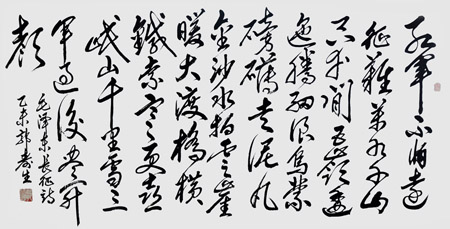 紅軍不怕遠
征難萬水千山
只等閒五嶺逶
迤騰細浪烏蒙
磅礴走泥丸
金沙水拍雲崖
暖大渡橋橫
鐵索寒更喜
岷山千里雪三
軍過後盡開
顏
毛澤東長征詩
乙未 壽生